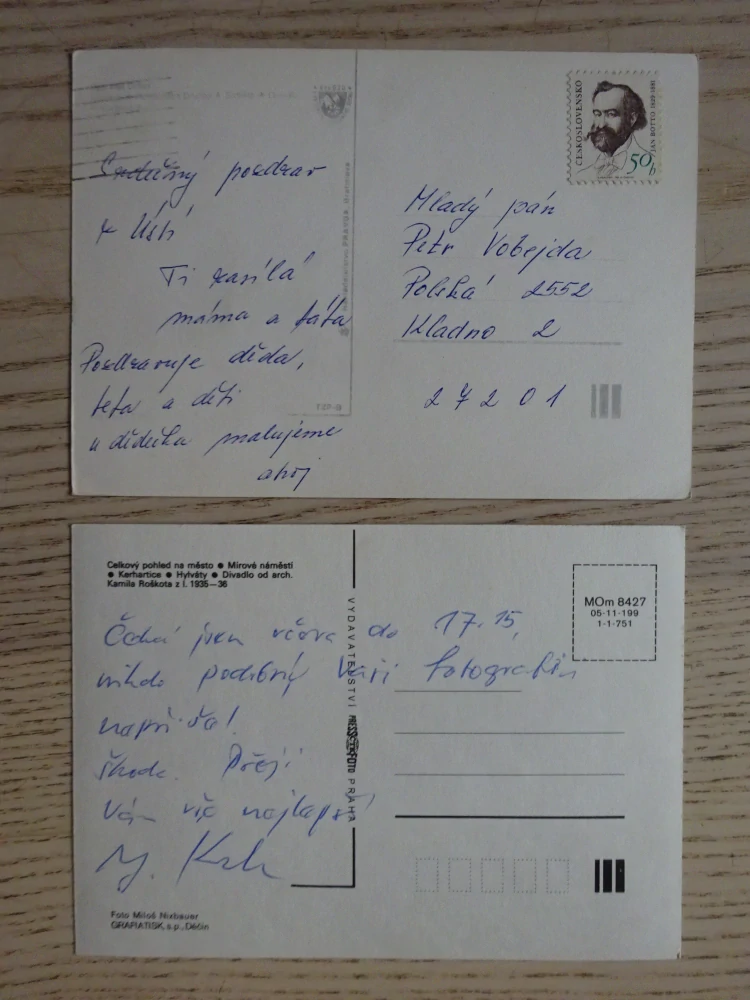 Srdečný pozdrav
z Ústí
Ti zasílá
máma a táta
Pozdravuje děda,
teta a děti
u dědečka malujeme
ahoj
ČESKOSLOVENSKO
JAN BOTTO 1829-1881
50h
Mladý pán
Petr Vobejda
Polská 2552
Kladno 2
27201
PRAVDA, Bratislava
Celkový pohled na město ● Mírové náměstí
● Kerhartice ● Hylváty ● Divadlo od arch.
Kamila Roškota z l. 1935—36
MOm 8427
05-11-199
1-1-751
VYDAVATELSTVÍ PRESSFOTO PRAHA
Čekal jsem včera do 17.15,
nikdo podobný Vaší fotografii
nepřišel!
Škoda. Přeji
Vám vše nejlepší
Foto Miloš Nixbauer
GRAFIATISK, s.p., Děčín